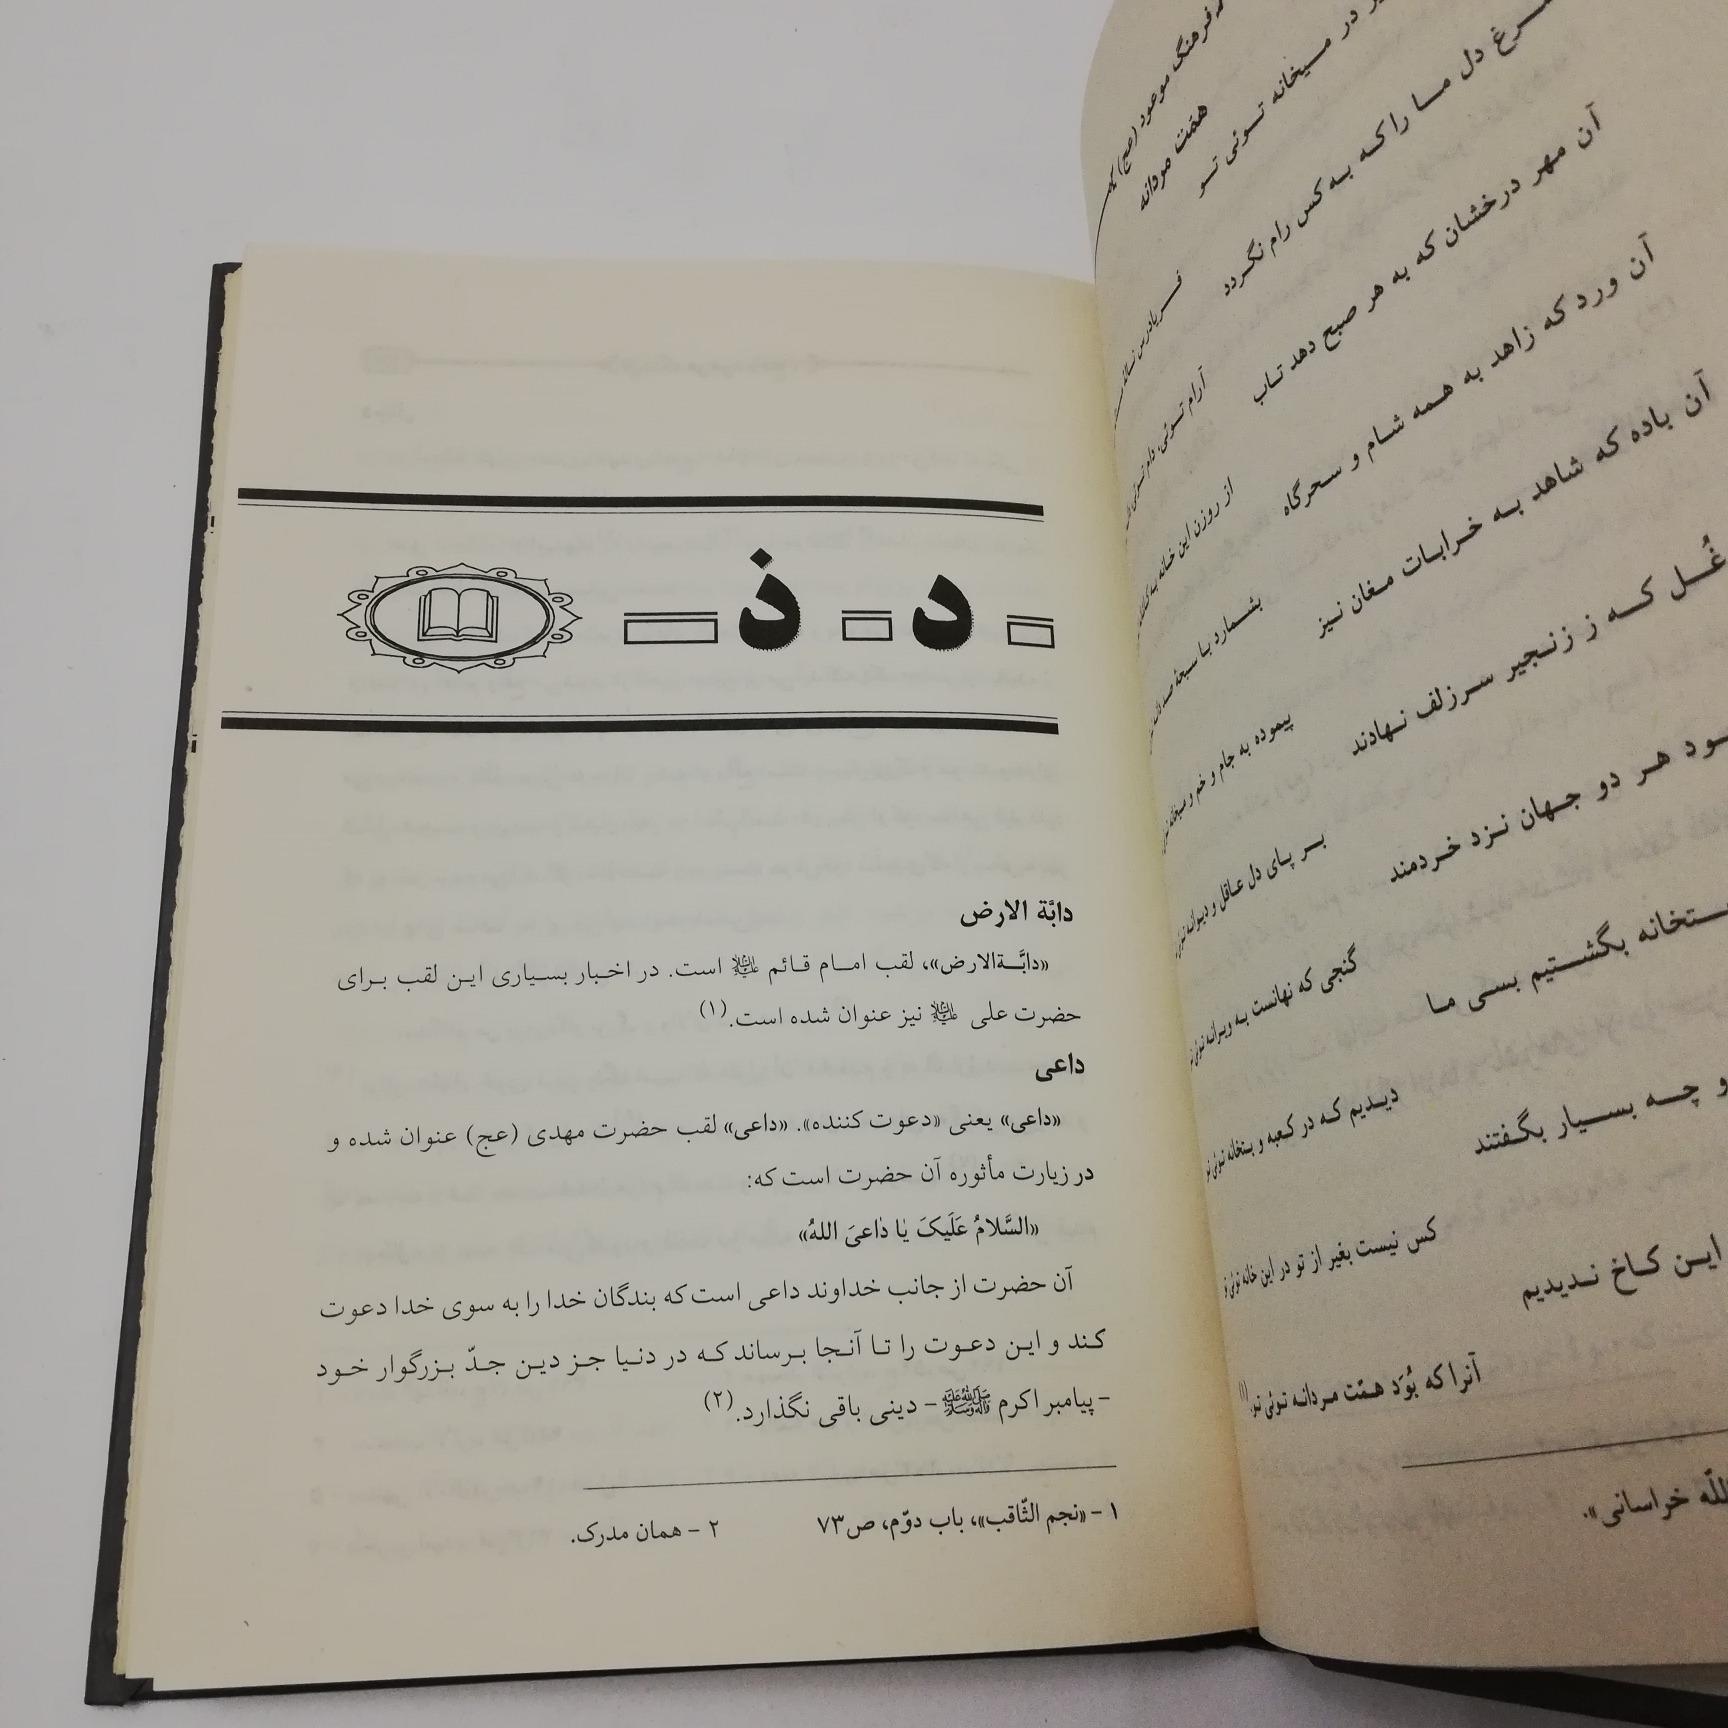 فرهنگ موعود (عج)
همّت مردانه
در میخانه توئی تو
دل ما را که به کس رام نگردد
آن مهر درخشان که به هر صبح دهد تاب
آرام توئی، دام توئی
آن ورد که زاهد به همه شام و سحرگاه
از روزن این خانه به
آن باده که شاهد به خرابات مغان نیز
بشمارد با سبحهٔ صد
که ز زنجیر سر زلف نهادند
پیموده به جام و خم و
هر دو جهان نزد خردمند
بر پای دل عاقل و دیوانه
بگشتیم بسی ما
گنجی که نهانست به ویرانه توئی
و چه بسیار بگفتند
دیدیم که در کعبه و بتخانه توئی تو
این کاخ ندیدیم
کس نیست بغیر از تو در این خانه توئی و
آنرا که بُوَد همّت مردانه توئی تو.(۱)
خراسانی».
د ذ
دابَّة الارض
«دابَّةالارض»، لقب امام قائم علیه‌السلام است. در اخبار بسیاری این لقب برای
حضرت علی علیه‌السلام نیز عنوان شده است.(۱)
داعی
«داعی» یعنی «دعوت کننده». «داعی» لقب حضرت مهدی (عج) عنوان شده و
در زیارت مأثوره آن حضرت است که:
«السَّلامُ عَلَیکَ یٰا دٰاعیَ اللهُ»
آن حضرت از جانب خداوند داعی است که بندگان خدا را به سوی خدا دعوت
کند و این دعوت را تا آنجا برساند که در دنیا جز دین جدّ بزرگوار خود
- پیامبر اکرم ﷺ - دینی باقی نگذارد.(۲)
۱ - «نجم الثّاقب»، باب دوّم، ص۷۳
۲ - همان مدرک.